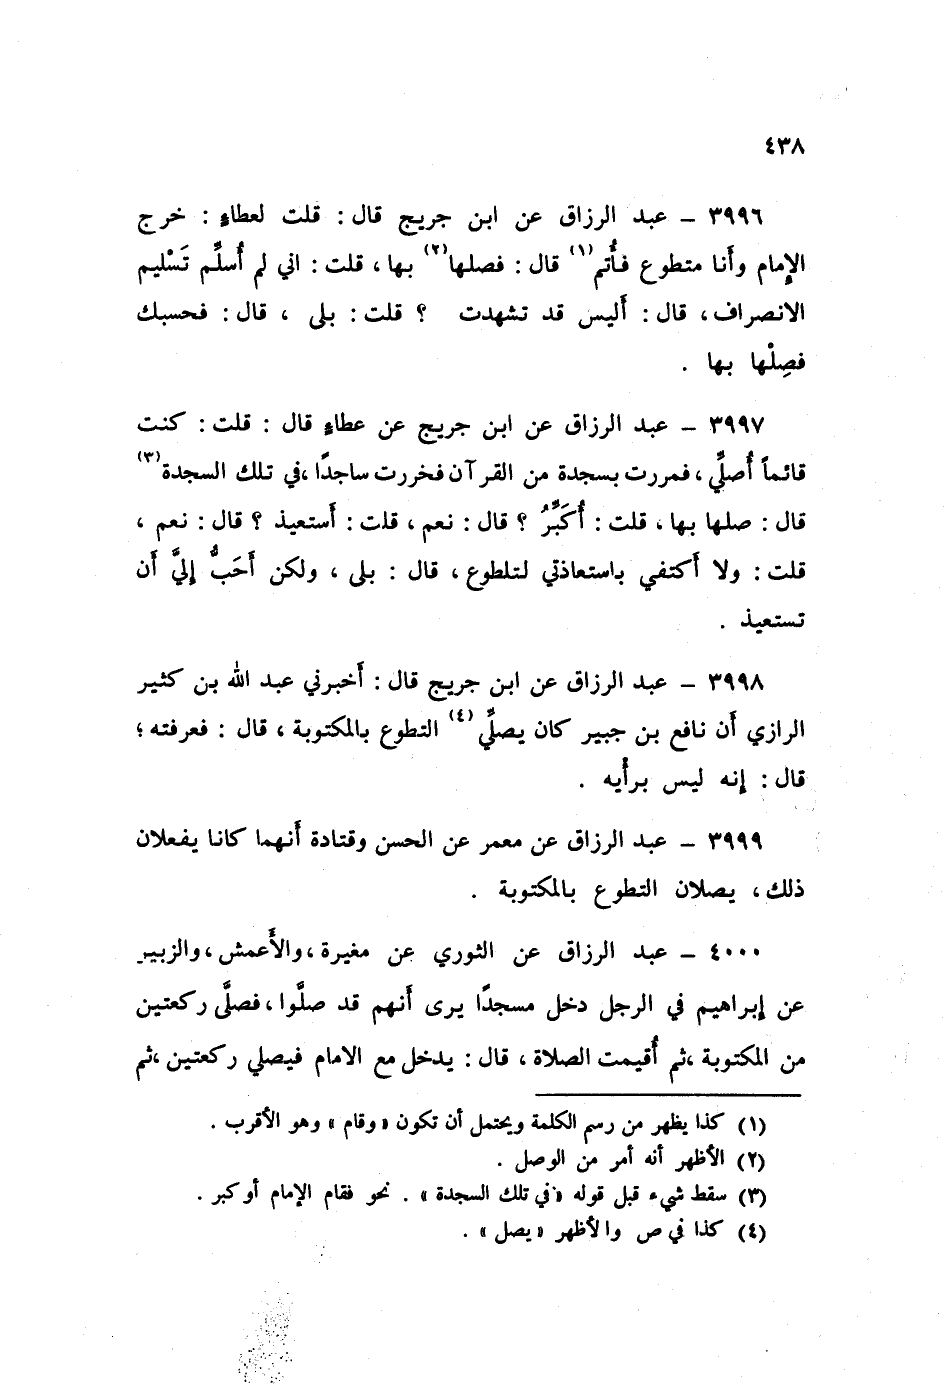 ٤٣٨
٣٩٩٦ – عبد الرزاق عن ابن جريج قال : قلت لعطاءٍ : خرج
الإمام وأَنا متطوع فأُتم(١) قال : فصلها(٢) بها ، قلت : اني لم أُسلِّم تَسْليم
الانصراف ، قال : أَليس قد تشهدت ؟ قلت : بلى ، قال : فحسبك
فصِلْها بها .
٣٩٩٧ – عبد الرزاق عن ابن جريج عن عطاءٍ قال : قلت : كنت
قائماً أُصلِّي ، فمررت بسجدة من القرآن فخررت ساجدًا ،في تلك السجدة(٣)
قال : صلها بها ، قلت : أُكَبِّرُ ؟ قال : نعم ، قلت : أَستعيذ ؟ قال : نعم ،
قلت : ولا أَكتفي باستعاذتي لتلطوع ، قال : بلى ، ولكن أَحَبُّ إِليَّ أَن
تستعيذ .
٣٩٩٨ – عبد الرزاق عن ابن جريج قال : أَخبرني عبد الله بن كثير
الرازي أَن نافع بن جبير كان يصلِّي(٤) التطوع بالمكتوبة ، قال : فعرفته ؛
قال : إنه ليس برأْيه .
٣٩٩٩ – عبد الرزاق عن معمر عن الحسن وقتادة أَنهما كانا يفعلان
ذلك ، يصلان التطوع بالمكتوبة .
٤٠٠٠ – عبد الرزاق عن الثوري عن مغيرة ، والأَعمش ، والزبير
عن إبراهيم في الرجل دخل مسجدًا يرى أَنهم قد صلَّوا ، فصلَّى ركعتين
من المكتوبة ،ثم أُقيمت الصلاة ، قال : يدخل مع الامام فيصلي ركعتين ،ثم
(١) كذا يظهر من رسم الكلمة ويحتمل أن تكون « وقام » وهو الأقرب .
(٢) الأظهر أنه أمر من الوصل .
(٣) سقط شيء قبل قوله « في تلك السجدة » . نحو فقام الإمام أو كبر .
(٤) كذا في ص والأظهر « يصل » .